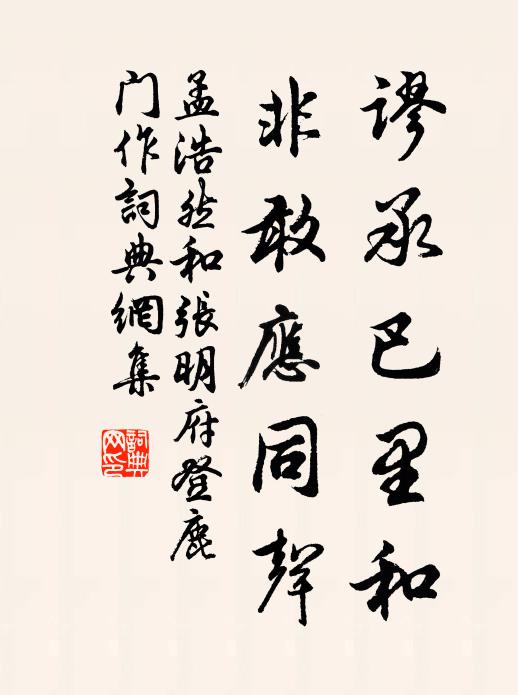 謬承巴里和
非敢應同聲
孟浩然和張明府登鹿
門作詞典網集
詞典
网印